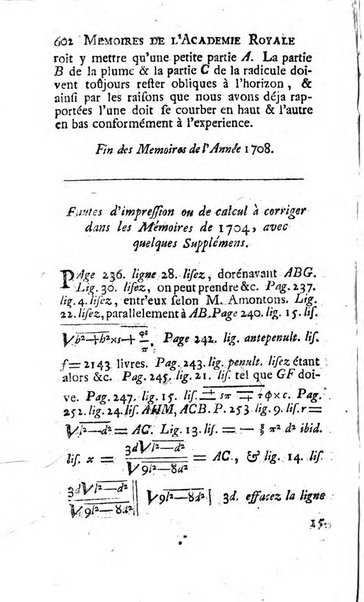 602 MEMOIRES DE L'ACADEMIE ROYALE
roit y mettre qu'une petite partie A. La partie
B de la plume & la partie C de la radicule doi-
vent toûjours rester obliques à l'horizon, &
ainsi par les raisons que nous avons déja rap-
portées l'une doit se courber en haut & l'autre
en bas conformément à l'experience.
Fin des Memoires de l'Année 1708.
Fautes d'impression ou de calcul à corriger
dans les Mémoires de 1704, avec
quelques Supplémens.
PAge 236. ligne 28. lisez, dorénavant ABG.
Lig. 30. lisez, on peut prendre &c. Pag. 237.
lig. 4. lisez, entr'eux selon M. Amontons. Lig.
22. lisez, parallelement à AB. Page 240. lig. 15. lis.
√b²+h²×s+ φs/π. Page 242. lig. antepenult. lis.
f=2143 livres. Pag. 243. lig. penult. lisez étant
alors &c. Pag. 245. lig. 21. lis. tel que GF doi-
ve. Pag. 247. lig. 15. lis. = s + τφ×c. Pag.
252. lig. 24. AHM, ACB. P. 253. lig. 9. lis. r=
√l²—d² = AC. Lig. 13. lis. = — ξ π² d² ibid.
lis. x = 3d√l²—d² / √9l²—8d² = AC, & lig. 14. lis.
3d√l²—d² / √9l²—8d² | √9l²—8d² | 3d. effacez la ligne
15.